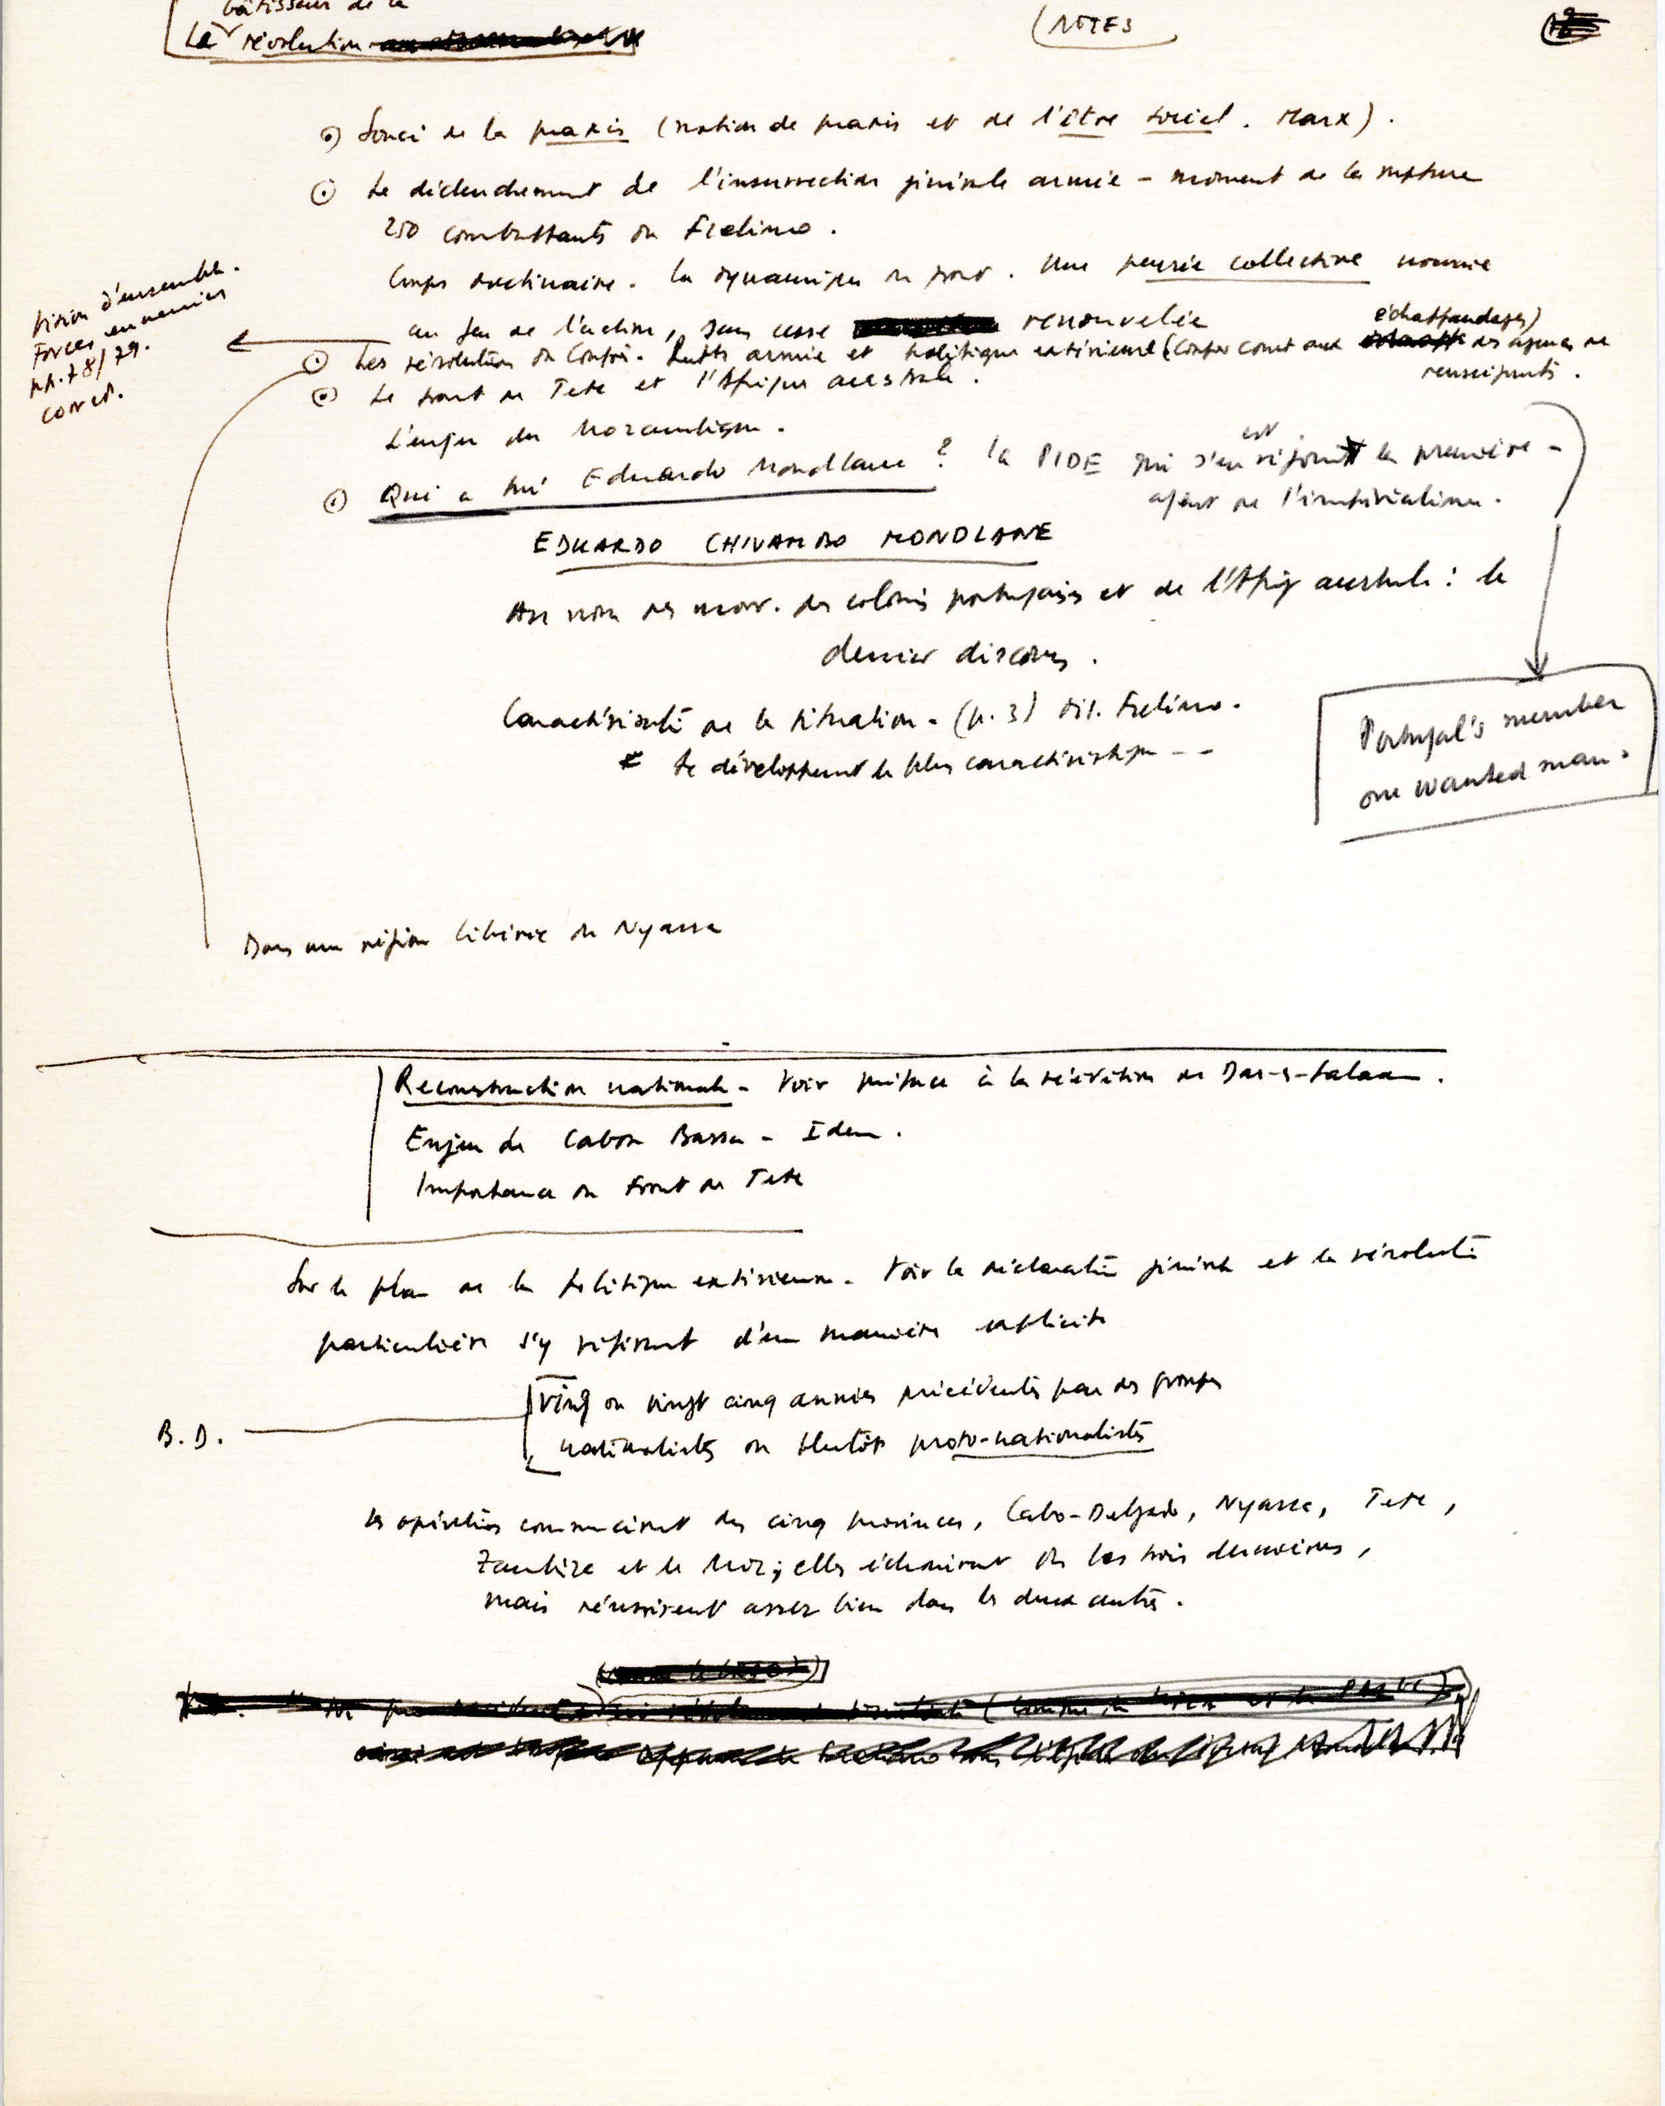 bâtisseur de la
La révolution
(NOTES
Souci de la praxis (notion de praxis et de l'être social. Marx).
Le déclenchement de l'insurrection générale armée - moment de la rupture
250 combattants du Frelimo.
Corps doctrinaire. La dynamique du front. Une pensée collective nourrie
au feu de l'action, sans cesse renouvelée
échaffaudages)
Les résolutions du Congrès. Lutte armée et politique extérieure (Couper court aux des agences de
renseignents.
Vision d'ensemble.
Forces ennemies
pp. 78/79.
corect.
Le front de Tete et l'Afrique australe.
L'enjeu du Mozambique.
Qui a tué Eduardo Mondlane ? La PIDE qui s'en est réjouit la première -
agent de l'impérialisme.
EDUARDO CHIVAMBO MONDLANE
Au nom des mouv. des colonies portugaises et de l'Afriq australe : le
dernier discours.
Caractérisaté de la situation - (p. 3) Frelimo.
Le développement le plus caractéristique --
Portugal's member
one wanted man.
Dans une région libérée du Nyassa
Reconstruction nationale - Voir préface à la réédition de Dar-s-Salaam.
Enjeu de Cabora Bassa - Idem.
Importance du Front de Tete
Sur le plan de la politique extérieure. Voir la déclaration générale et la résolutie
particulière s'y référant d'une manière explicite
Ving ou vingt cinq années précédentes par des groupes
B. D.
nationalistes ou plutôt proto-nationalistes
Les opérations commencèrent des cinq provinces, Cabo-Delgado, Nyassa, Tete,
Zambèze et le Moz; elles échouèrent ds les trois dernières,
mais réussirent assez bien dans les deux autres.